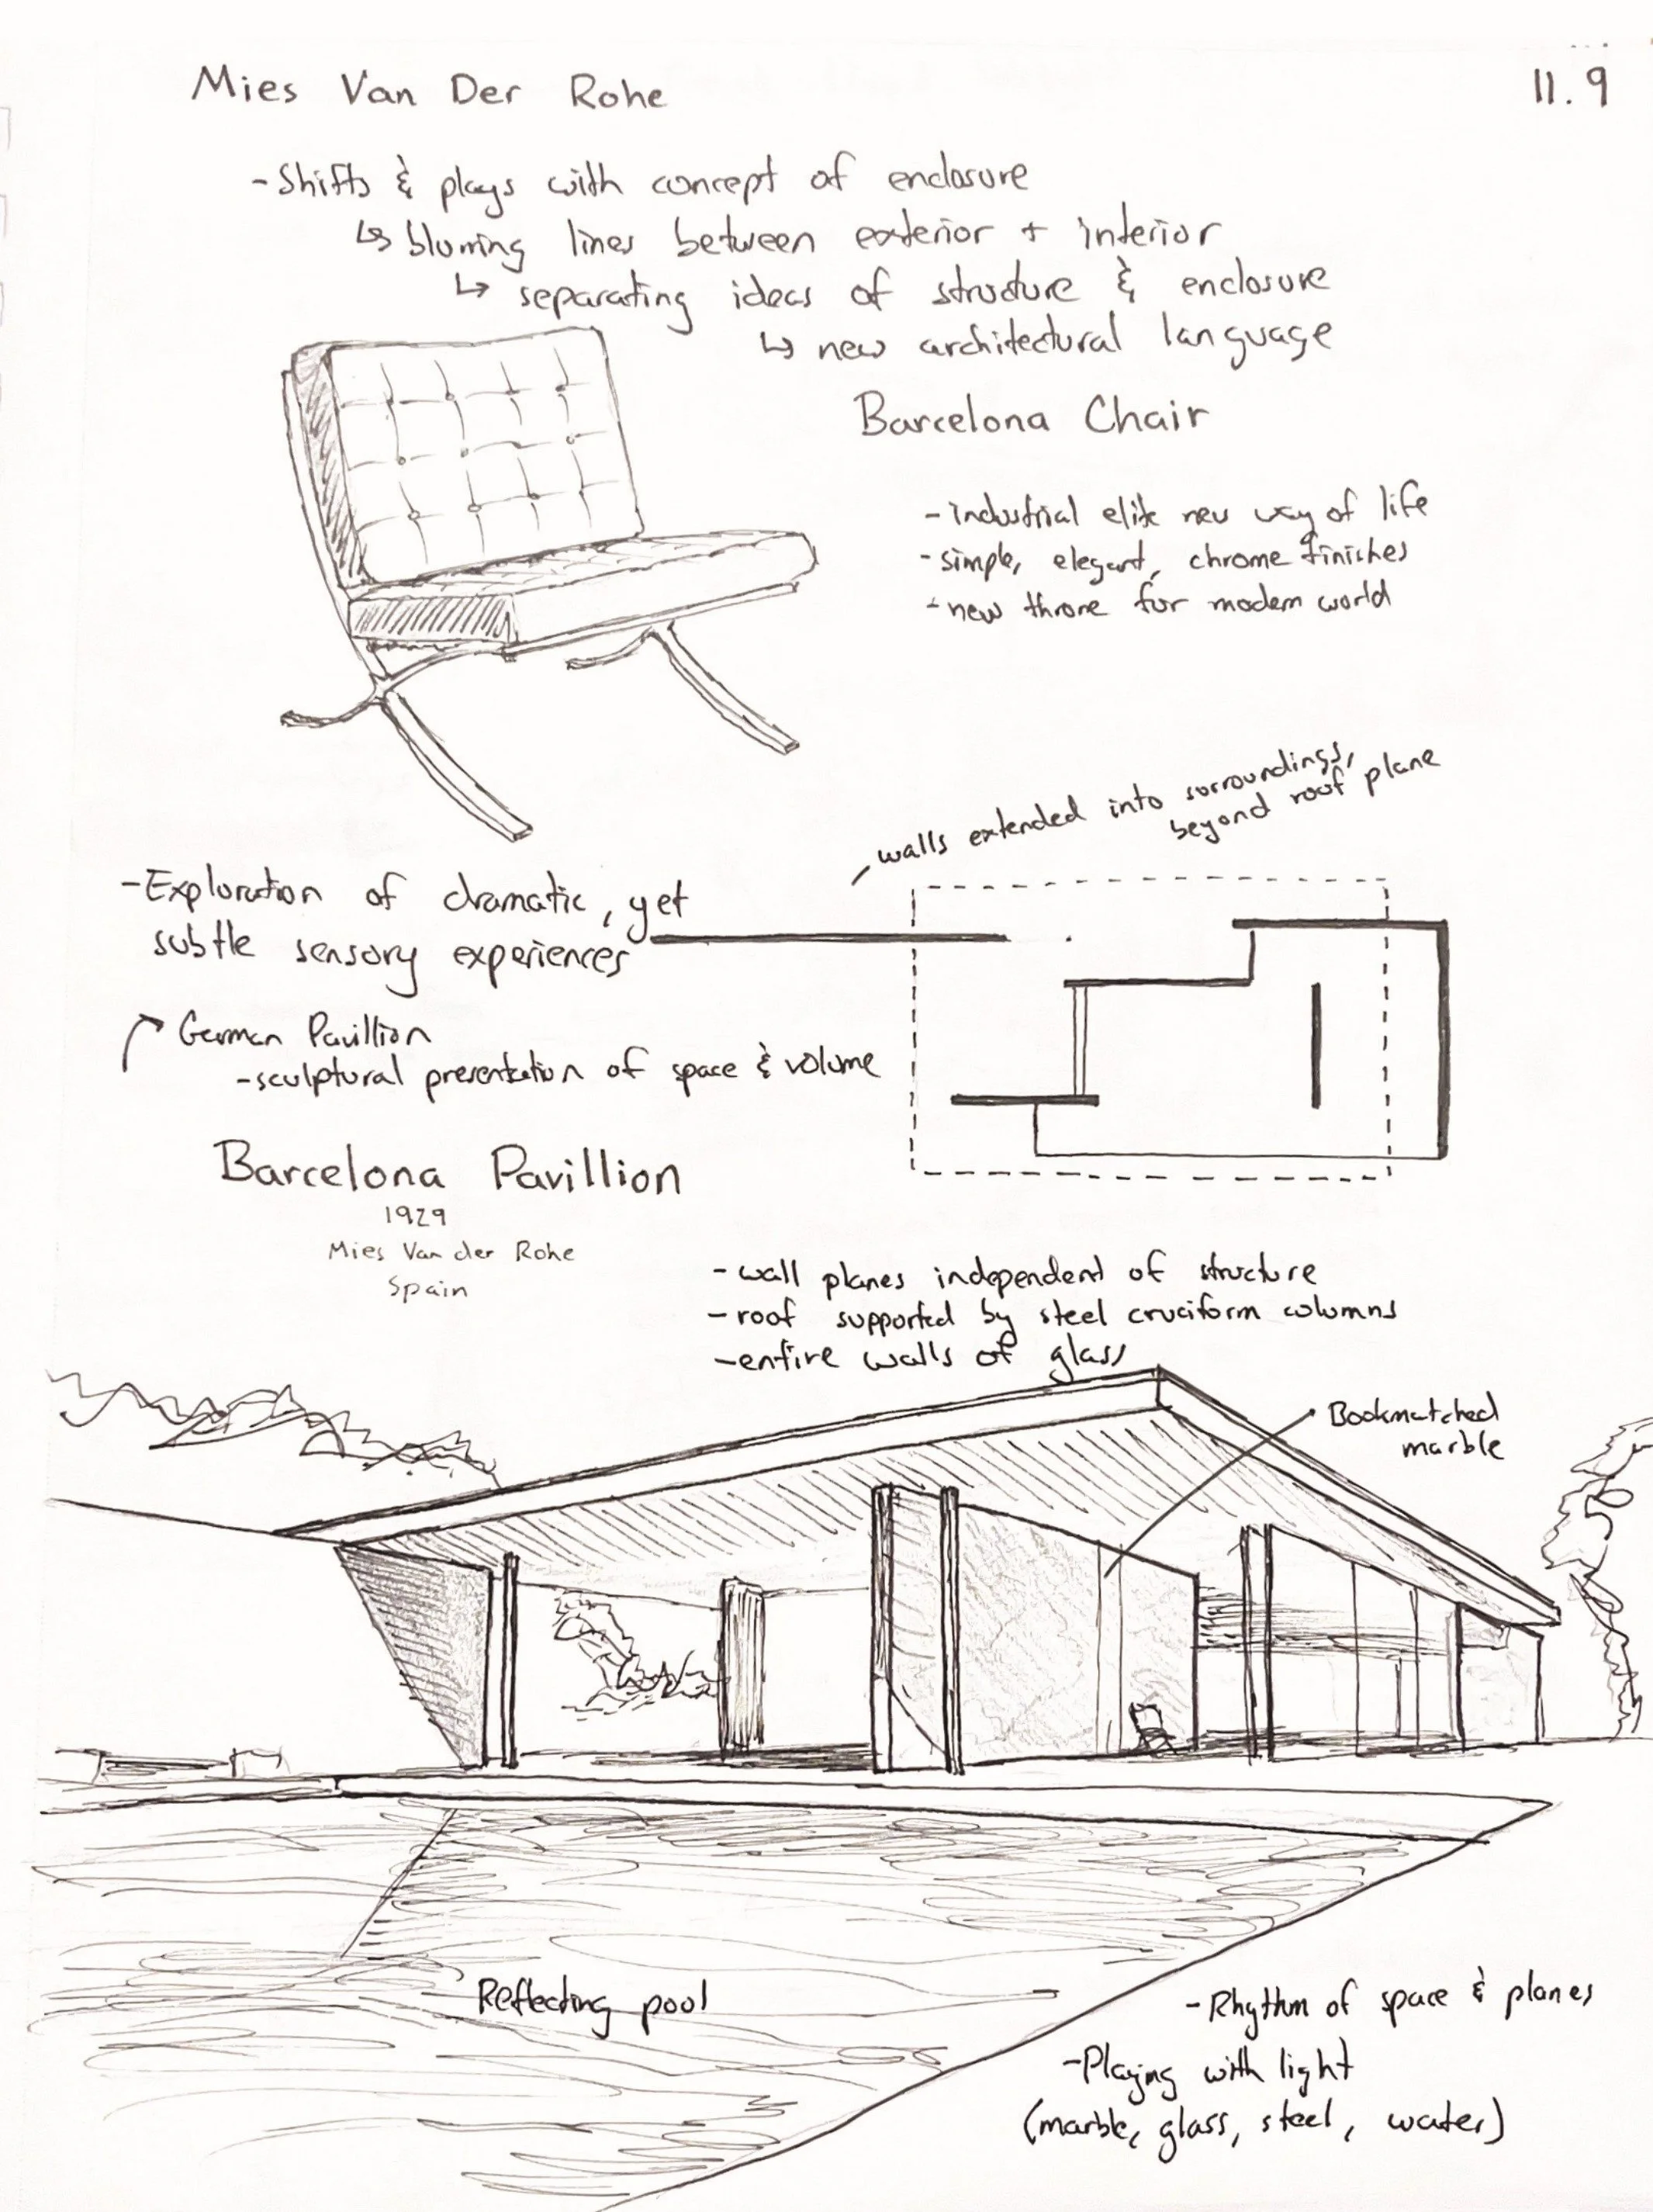 Mies Van Der Rohe
11.9
- Shifts & plays with concept of enclosure
↳ blurring lines between exterior + interior
↳ separating ideas of structure & enclosure
↳ new architectural language
Barcelona Chair
- industrial elite new way of life
- simple, elegant, chrome finishes
- new throne for modern world
walls extended into surroundings,
beyond roof plane
- Exploration of dramatic, yet
subtle sensory experiences
German Pavillion
- sculptural presentation of space & volume
Barcelona Pavillion
1929
Mies Van der Rohe
Spain
- wall planes independent of structure
- roof supported by steel cruciform columns
- entire walls of glass
Bookmatched
marble
Reflecting pool
- Rhythm of space & planes
- Playing with light
(marble, glass, steel, water)